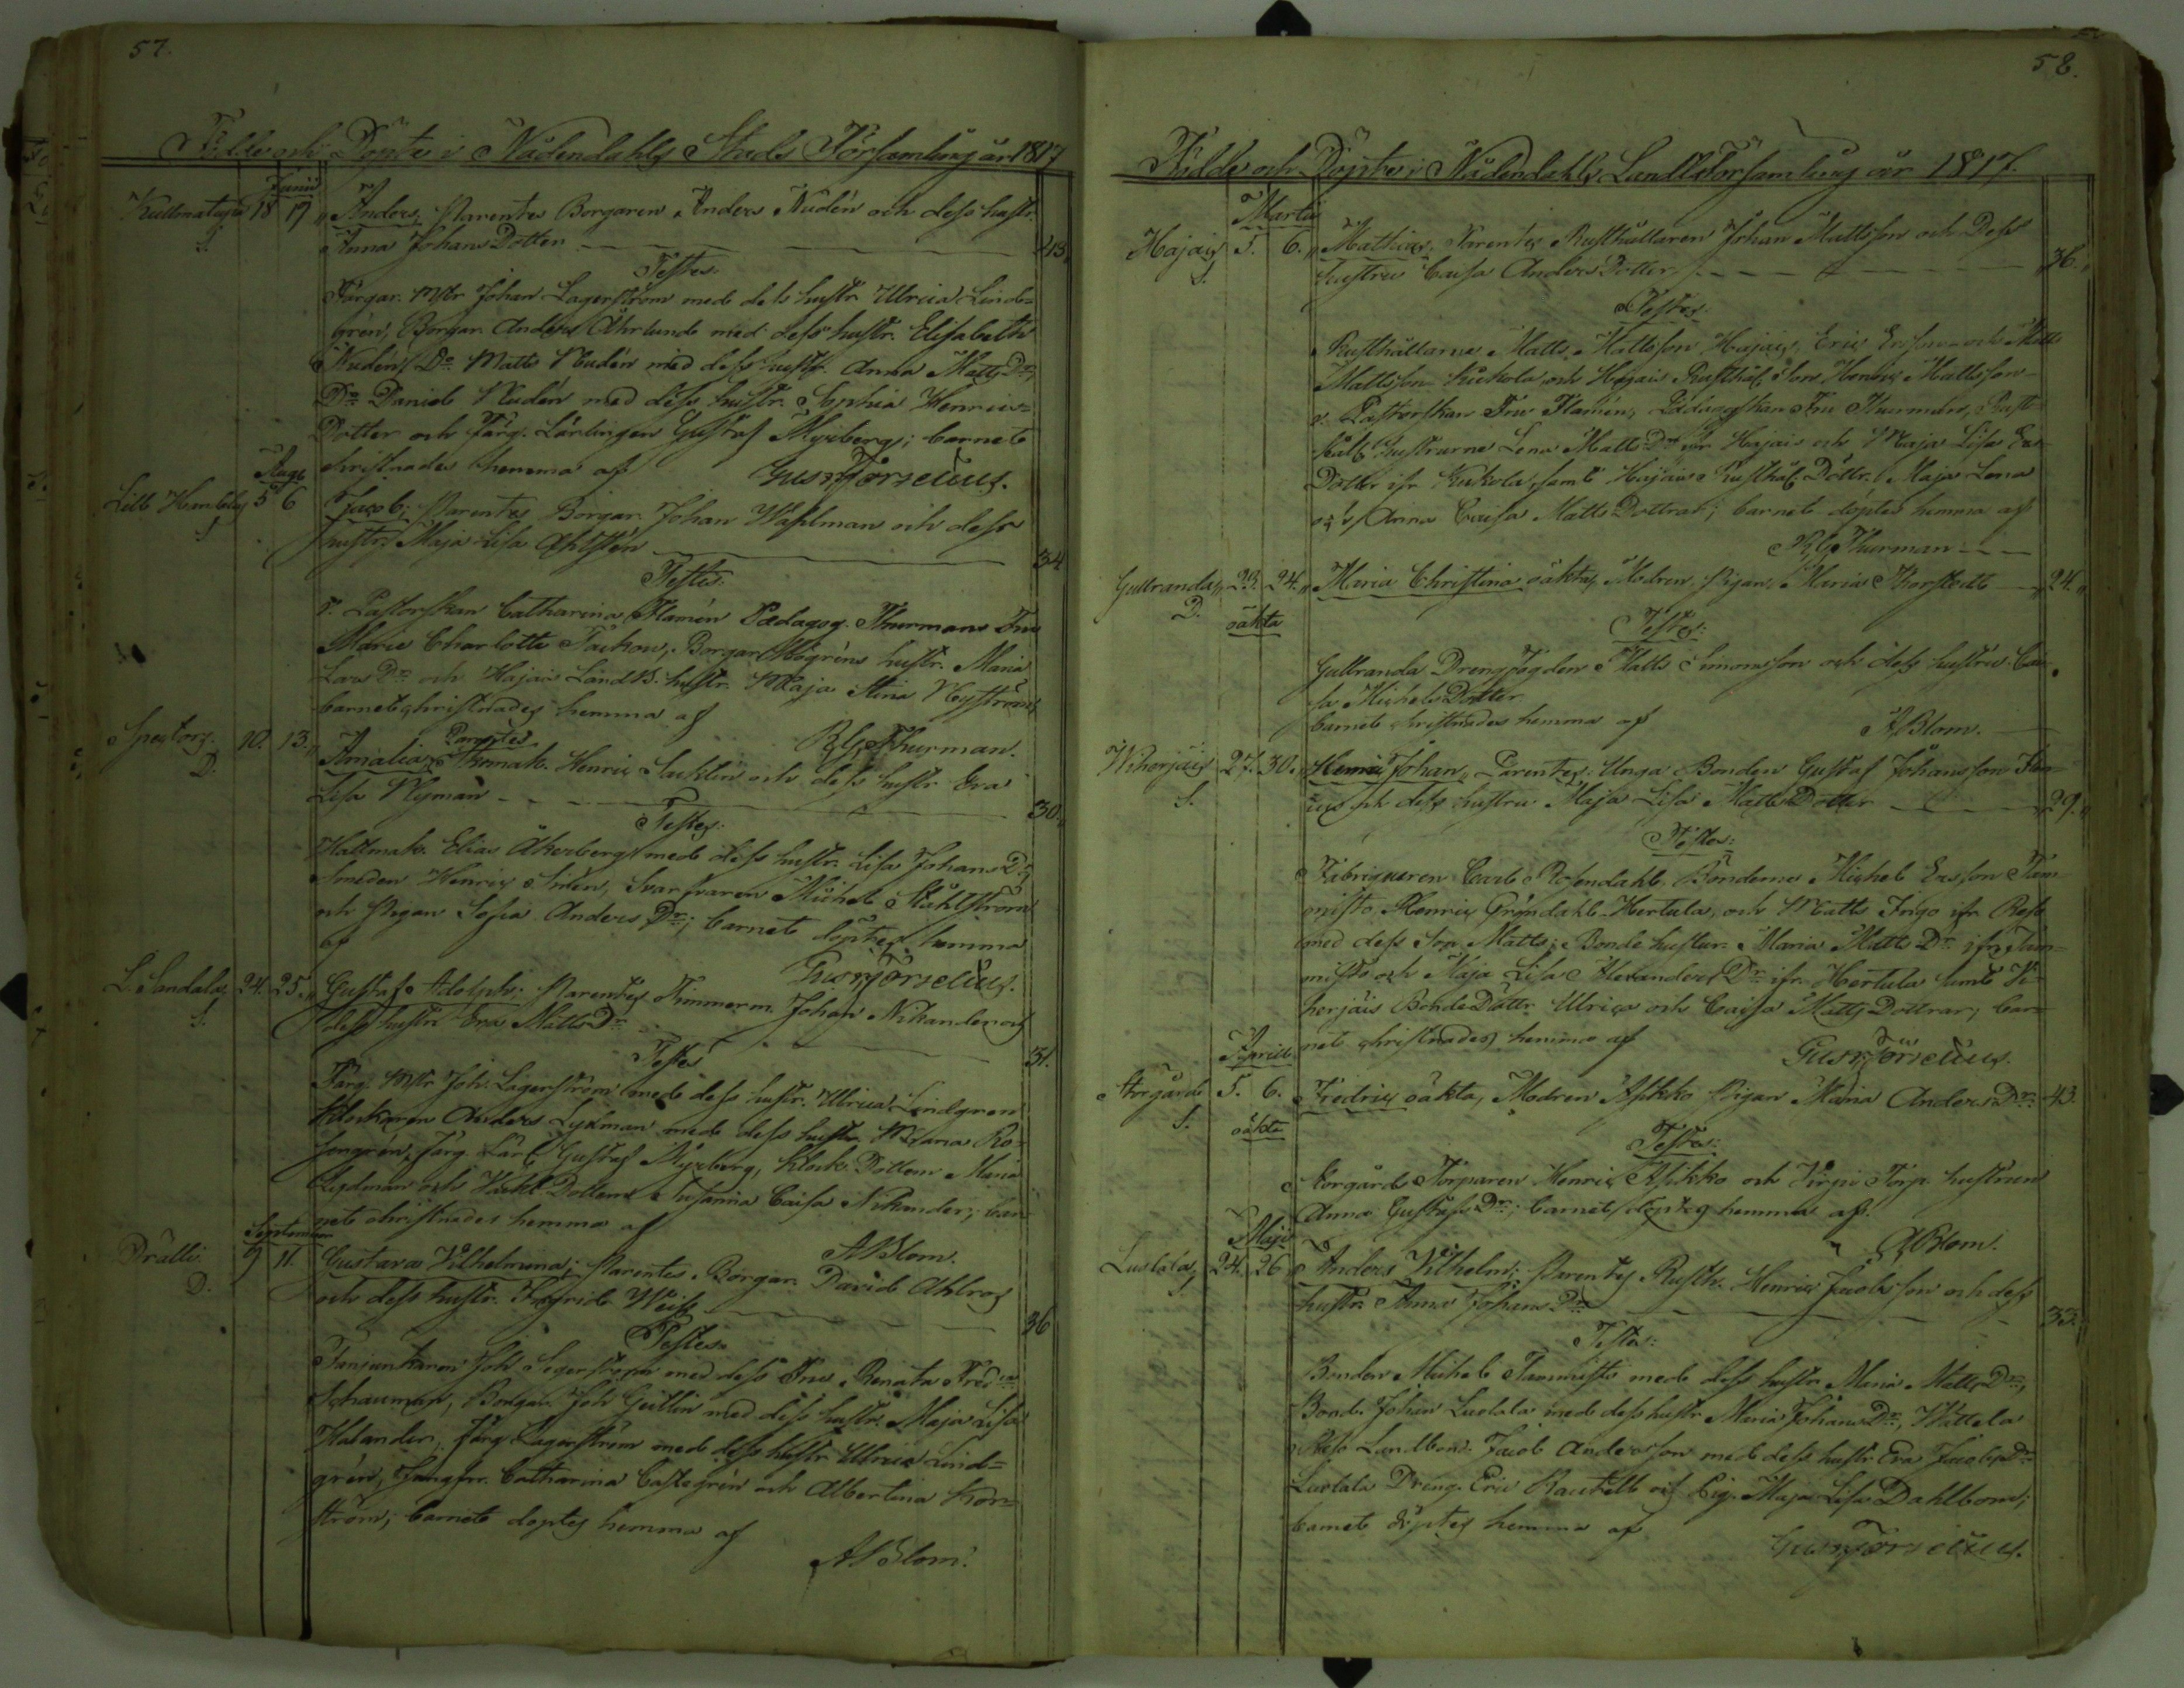 57.
Födde och Döpte i Nådendahls Stads Församling år 1817
Junii
18 17 Anders; Parentes Borgaren Anders Nudén och dess hustr.
S. Anna Johans Dotter 43
Testes.
Färgar. Mstr Johan Lagerström med dess hustr. Ulrica Lind=
grén, Borgar. Anders Åhrlund med dess hustr. Elisabeth
Nudén, Do Matts Nudén med dess hustr. Anna Matts Dr,
Do Daniel Nudén med dess hustr. Sophia Henrics=
Dotter och Färg. Lärlingen Gustaf Myrberg; barnet
christnades hemma af
Aug.
5 6 Jacob; Parentes Borgar. Johan Wahlman och dess
S hustr. Maja Lisa 34
Testes.
v. Pastorskan Catharina Flamén Pædagog. Thurmans Fru
Maria Charlotte Borgar. hustr. Maria
Lars Dr och Hajais Landtb. hustr. Maja Stina Nyström
barnet christnades hemma af
RG Thurman.
10. 13. Amalia, Parentes Henric och dess hustr. Eva
D. Lisa Nyman 30.
Testes.
Hattmak. Elias Åkerberg med dess hustr. Lisa Johans Dr
Smeden Henric Sirén, Svarfvaren Michel Ståhlström
och Pigan Sofia Anders Dr; barnet döptes hemma
af
L. Sandala, 24. 25. Gustaf Adolph; Parentes Timmerm. Johan Nikander och
S. dess hustr. Eva Matts Dr 31.
Testes
Färg. Mstr Joh. Lagerström med dess hustr. Ulrica Lindgren
Klockaren Anders Lydman med dess hustr. Maria Ro=
sengrén, Färg. Lärl. Gustaf Myrberg, Klock. Dottern Maria
Lydman och Dottern Susanna Caisa Nikander; bar
net christnades hemma af
A Blom.
September
Drälli 9 11. Gustava Vilhelmina; Parentes Borgar. David Ahlroos
D. och dess hustr. Ingrid 36
Testes.
Fanjunkaren Joh. Segerström med dess Fru Renata Fredca
Schauman, Borgar. Joh. med dess hustr. Maja Lisa
Färg. Lagerström med dess hustr. Ulrica Lind=
grén, Jungfrr. Catharina Castegrén och Albertina
ström; barnet döptes hemma af
A Blom.
58.
Födde och Döpte i Nådendahls Landtförsamling år 1817.
Martii
Hajais 5. 6. Mathias. Parentes Rusthållaren Johan Mattsson och Dess
S. hustru Caisa Anders Dotter 36.
Testes
Rusthållarne Matts Mattsson Hajais, Eric Ersson och Matts
Mattsson Kukola, och Hajais Rusthål. Son Henric Mattsson
v. Pastorskan Fru Flamén, Pædagogskan Fru Thurman, Rust
hål. hustrurna Lena Matts Dr ifr Hajais och Maja Lisa Ers
Dotter ifr Kukola, samt Hajais Rusthål. Döttr. Maja Lena
och Anna Caisa Matts Dottrar; barnet döptes hemma af
RG Thurman
Gullranda, 23. 24. Maria Christina oäkta, Modren, Pigan, Maria Thorstedt 24.
D. oäkta
Testes:
Gullranda Drengfogden Matts Simonsson och dess hustru Cai
sa Michels Dotter
barnet christnades hemma af A Blom.
Viherjais 27. 30. Henric Johan, Parentes: Unga Bonden Gustaf Johansson
S. och dess hustru Maja Lisa Matts Dotter 29.
Testes:
Fabriqueren Carl Rosendahl. Bönderne Michel Ersson Tam
misto, Henric Gröndahl Hertula, och Matts ifr Reso
med dess Son Matts; Bonde hustur. Maria Matts Dr ifr Tam=
misto och Maja Lisa Alexanders Dr ifr. Hertula samt Vi=
herjais Bonde Döttr. Ulrica och Caisa Matts Dottrar; bar=
net christnades hemma af
Aprill
5. 6. Fredric oäkta, Modren Asikko Pigan Maria Anders Dr 43.
S. oäkta
Testes:
Torparen Henric Asikko och Virpi Torp. hustrun
Anna Gustafs Dr; barnet döptes hemma af.
A Blom.
Maji
Luolala, 24. 26 Anders Vilhelm; Parentes Rusth. Henric Jacobsson och dess
S. hustr. Anna Johans Dr 33.
Testes:
Bonden Michel Tammisto med dess hustr. Maria Matts Dr,
Bond. Johan Luolala med dess hustr Maria Johans Dr,
Reso Landbond. Jacob Andersson med dess hustr. Eva Jacobs Dr
Luolala Dreng. Eric Rautell och Pig. Maja Lisa Dahlbom;
barnet döptes hemma af